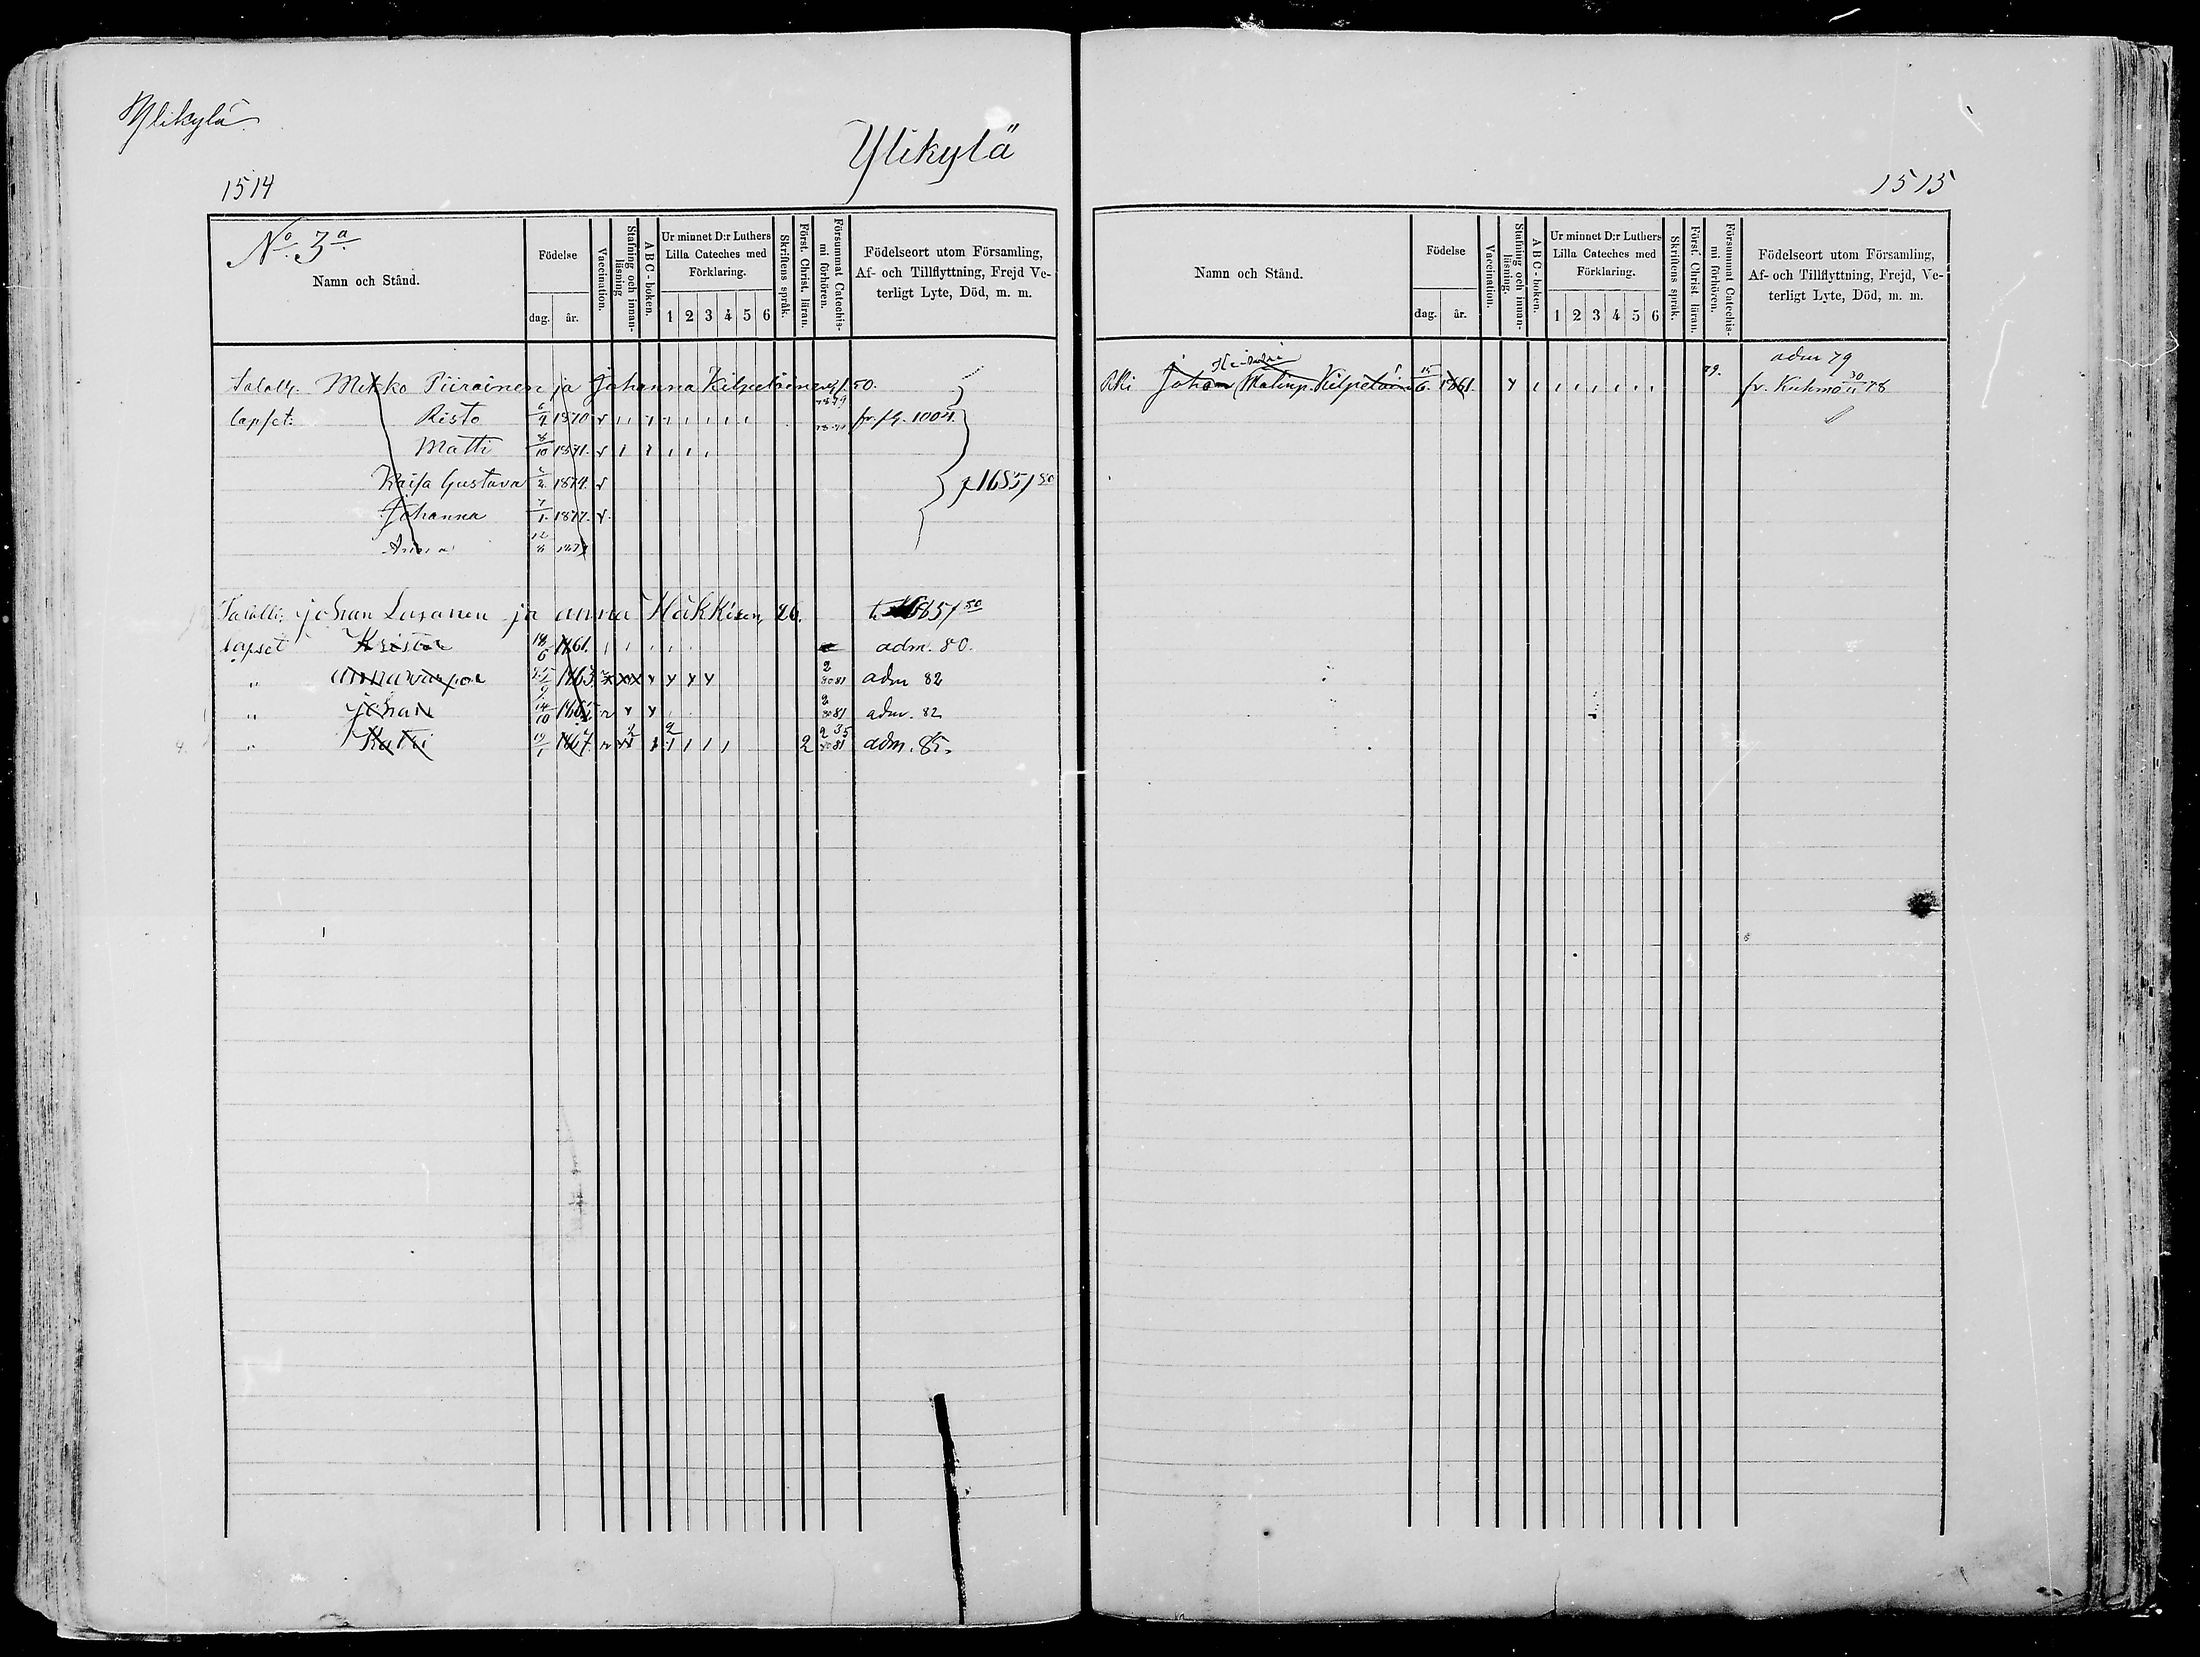 Ylikylä
Ylikylä
1514
No 3a
Namn och Stånd.
Födelse
dag. år.
Vaccination.
Stafning och innanläsning
ABC-boken.
Ur minnet D:r Luthers Lilla Cateches med Förklaring.
1 2 3 4 5 6
Skriftens språk.
Först. Christ. läran.
Försummat Catechismi förhören.
Födelseort utom Församling, Af- och Tillflyttning, Frejd Veterligt Lyte, Död, m. m.
Mikko Piirainen ja Johanna Kilpeläinen 50.
lapset: Risto 6/4 1870 fr. pg. 1004.
Matti 8/10 1871.
Kaisa Gustava 1874. 1685/80
Johanna 7/1. 1877.
Anna 12
Johan Lusanen ja Anna Häkkisen, 26. 80
lapset Kristo 18/6 1861. adm. 80.
" 1863 2 80 81 adm 82
" Johan 14/10 1865 2 80 81 adm. 82
" Katri 19/1 1867 2 80 81 adm. 85.
1515
Namn och Stånd.
Födelse
dag. år.
Vaccination.
Stafning och innanläsning.
ABC-boken.
Ur minnet D:r Luthers Lilla Cateches med Förklaring.
1 2 3 4 5 6
Skriftens språk.
Först. Christ. läran.
Försummat Catechismi förhören.
Födelseort utom Församling, Af- och Tillflyttning, Frejd, Veterligt Lyte, Död, m. m.
adm 79
Johan Kilpeläin 15/6. 1861. 79. fr. Kuhmo 30/11 78